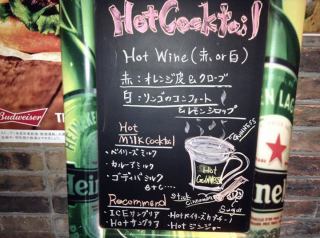 Hot Cocktail
Hot Wine (赤 or 白)
赤：オレンジ皮&クローブ
白：リンゴのコンフォート
&レモンシロップ
Hot
Milk Cocktail
・ベイリーズミルク
・カルーアミルク
・ゴディバミルク
etc...
GUINNESS
Hot
GUINNESS
stick
cinnamon
Sugar
Recommend
・ICEサングリア
・Hotサングリア
・Hotジンジャー
Budweiser
Heine